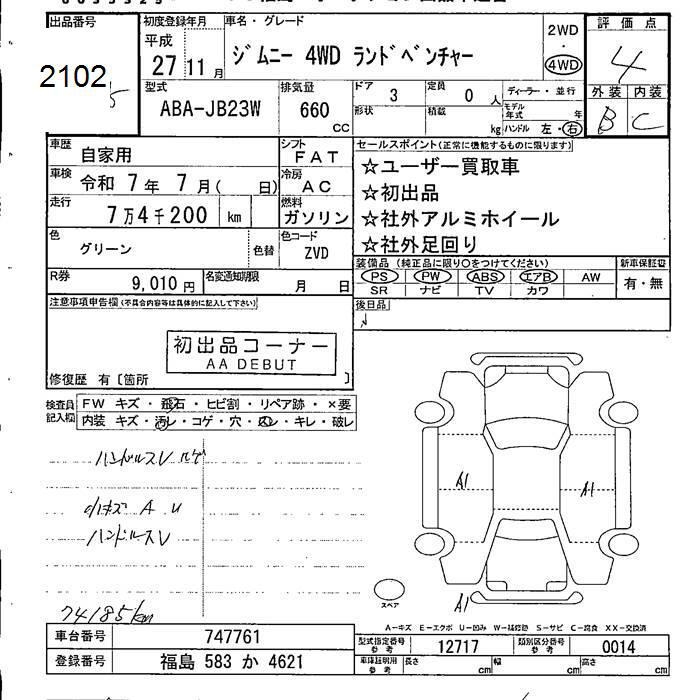 出品番号
2102
5
初度登録年月
平成
27 11 月
車名・グレード
ジムニー 4WD ランドベンチャー
2WD
・
4WD
評価点
4
外装 内装
B C
型式
ABA-JB23W
排気量
660
CC
ドア
3
定員
0 人
形状
積載
kg
ディーラー・並行
モデル
年式 年
ハンドル 左・右
車歴
自家用
シフト
FAT
車検
令和 7 年 7 月( 日)
冷房
AC
走行
7万4千200 km
燃料
ガソリン
色
グリーン
色替
色コード
ZVD
R券
9,010 円
名変通知期限
月 日
セールスポイント(正常に機能するものに限ります)
☆ユーザー買取車
☆初出品
☆社外アルミホイール
☆社外足回り
装備品(純正品に限り○をつけてください)
PS PW ABS エアB AW
SR ナビ TV カワ
新車保証書
有・無
後日品
注意事項申告欄(不具合内容等は具体的に記入して下さい)
初出品コーナー
AA DEBUT
修復歴 有〔箇所 〕
検査員
記入欄
FW キズ・飛石・ヒビ割・リペア跡・×要
内装 キズ・汚レ・コゲ・穴・凹ミ・キレ・破レ
ハンドルスレ
ハンドルスレ
74185km
A1
A1
A1
スペア
A-キズ E-エクボ U-凹み W-補修跡 S-サビ C-腐食 XX-交換済
車台番号
747761
登録番号
福島 583 か 4621
型式指定番号
参考
12717
類別区分番号
参考
0014
車庫証明用
参考
長さ cm
幅 cm
高さ cm